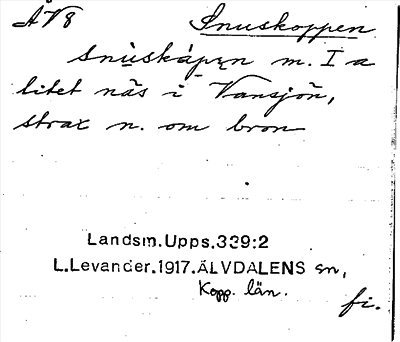 ÅV8 Snuskoppen
snùskápen m. I a
litet näs i Vansjön,
strax n. om bron
Landsm.Upps.339:2
L.Levander.1917.ÄLVDALENS sn,
Kopp. län.
fi.